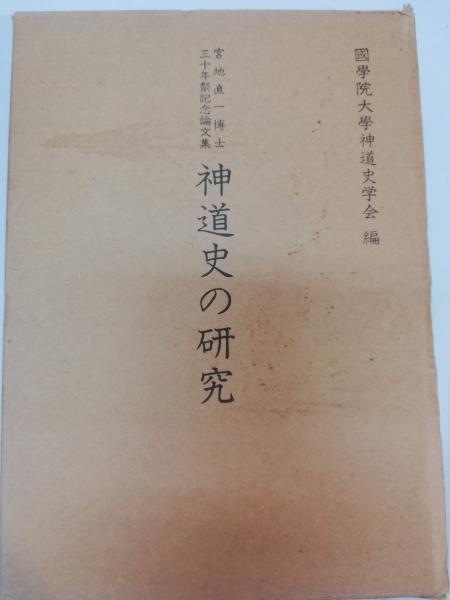 國學院大學神道史学会 編
宮地直一博士
三十年祭記念論文集
神道史の研究